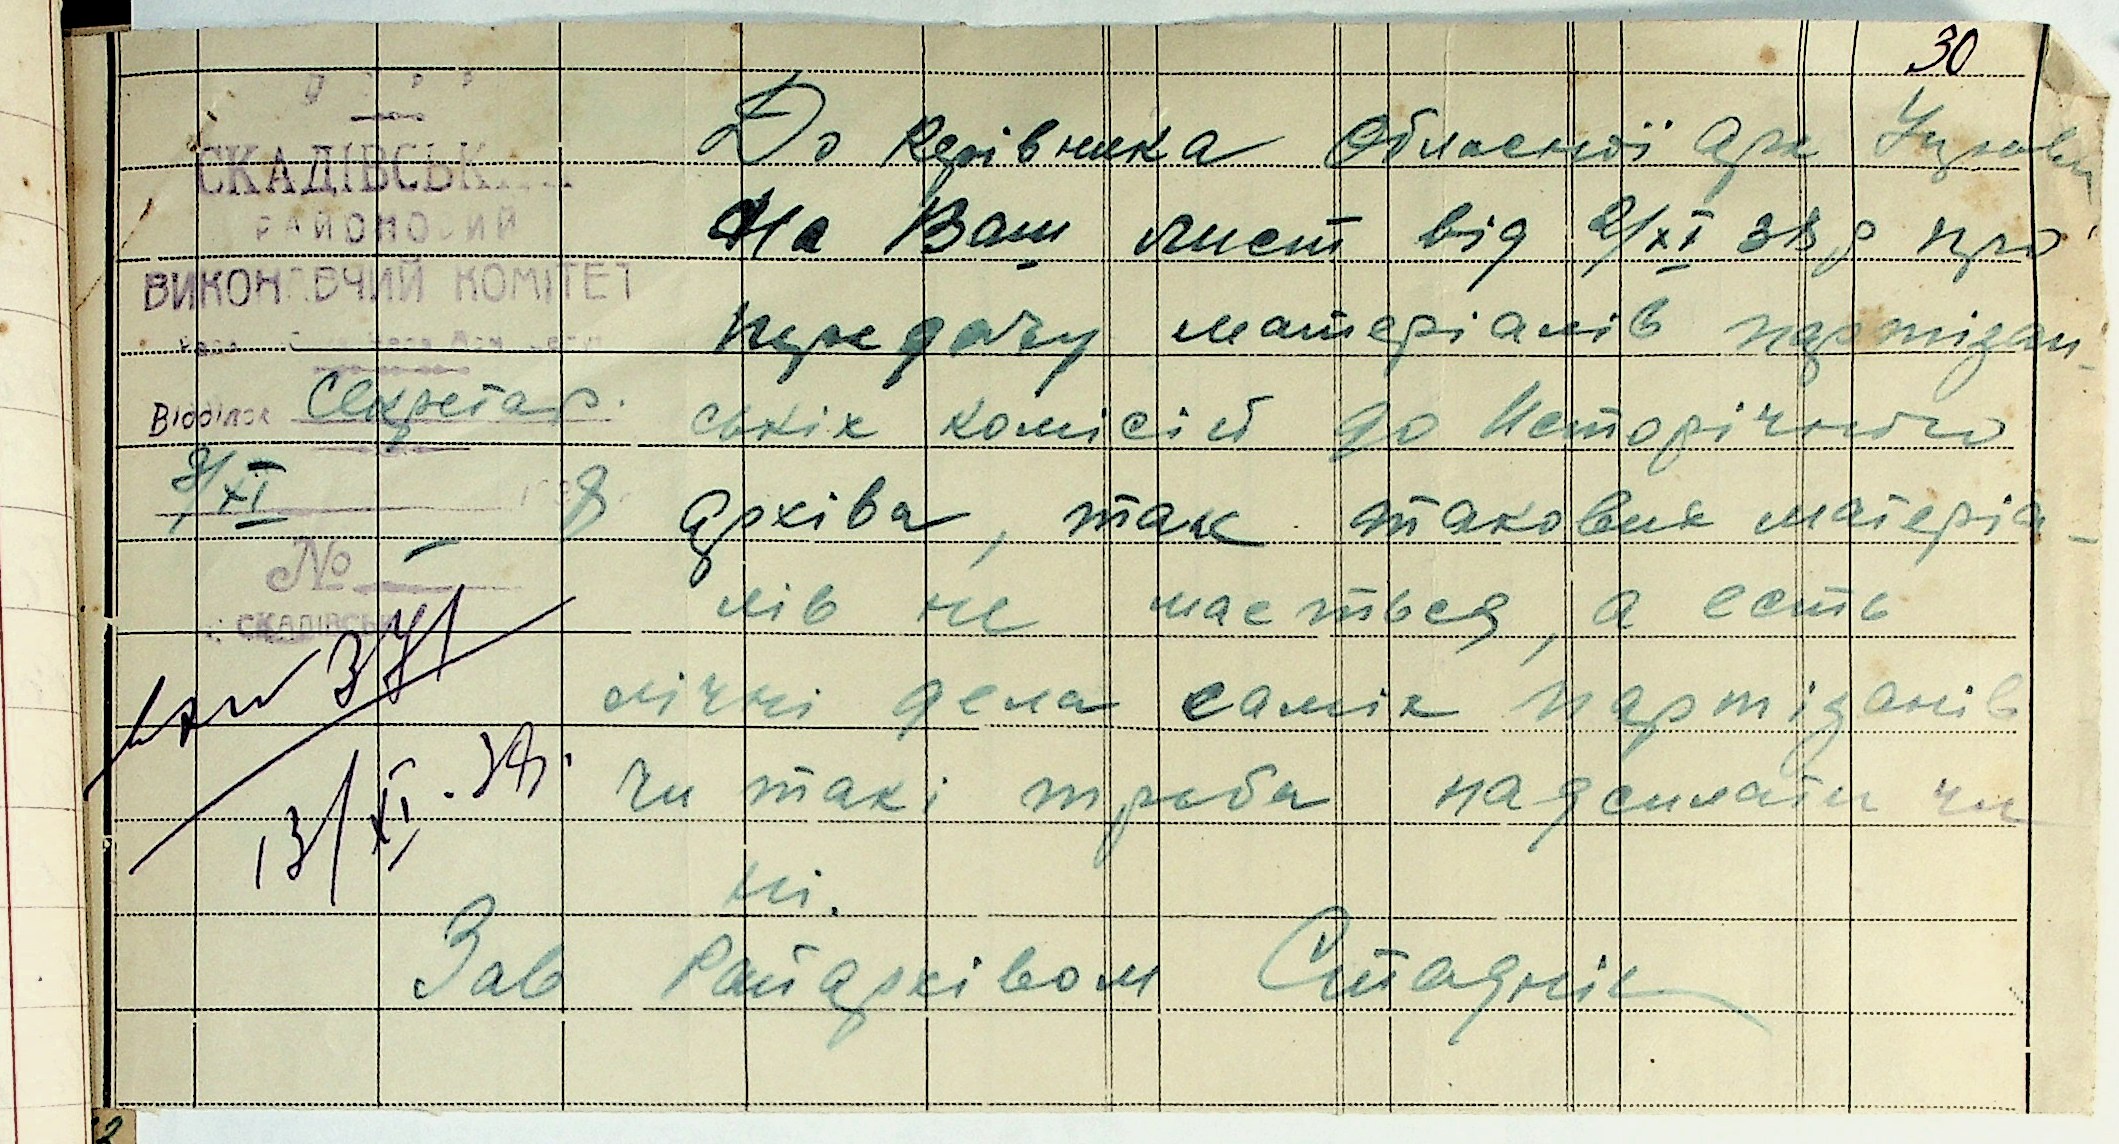 30
У С Р Р
СКАДІВСЬК
РАЙОНОВИЙ
ВИКОНАВЧИЙ КОМІТЕТ
Відділок Секретар.
8/XI 8
№ –
СКАДІВСЬК
вхм 371
13/XI-38р.
До Керівника Обласної Арх Управи
На Ваш лист від 2/XI 38 р про
передачу матеріалів партізан-
ських комісій до Історічного
архіва, так таковых матеріа-
лів не маеться, а есть
лічні дела саміх партізанів
чи такі треба надсилати чи
ні.
Зав Райархівом Стаднік